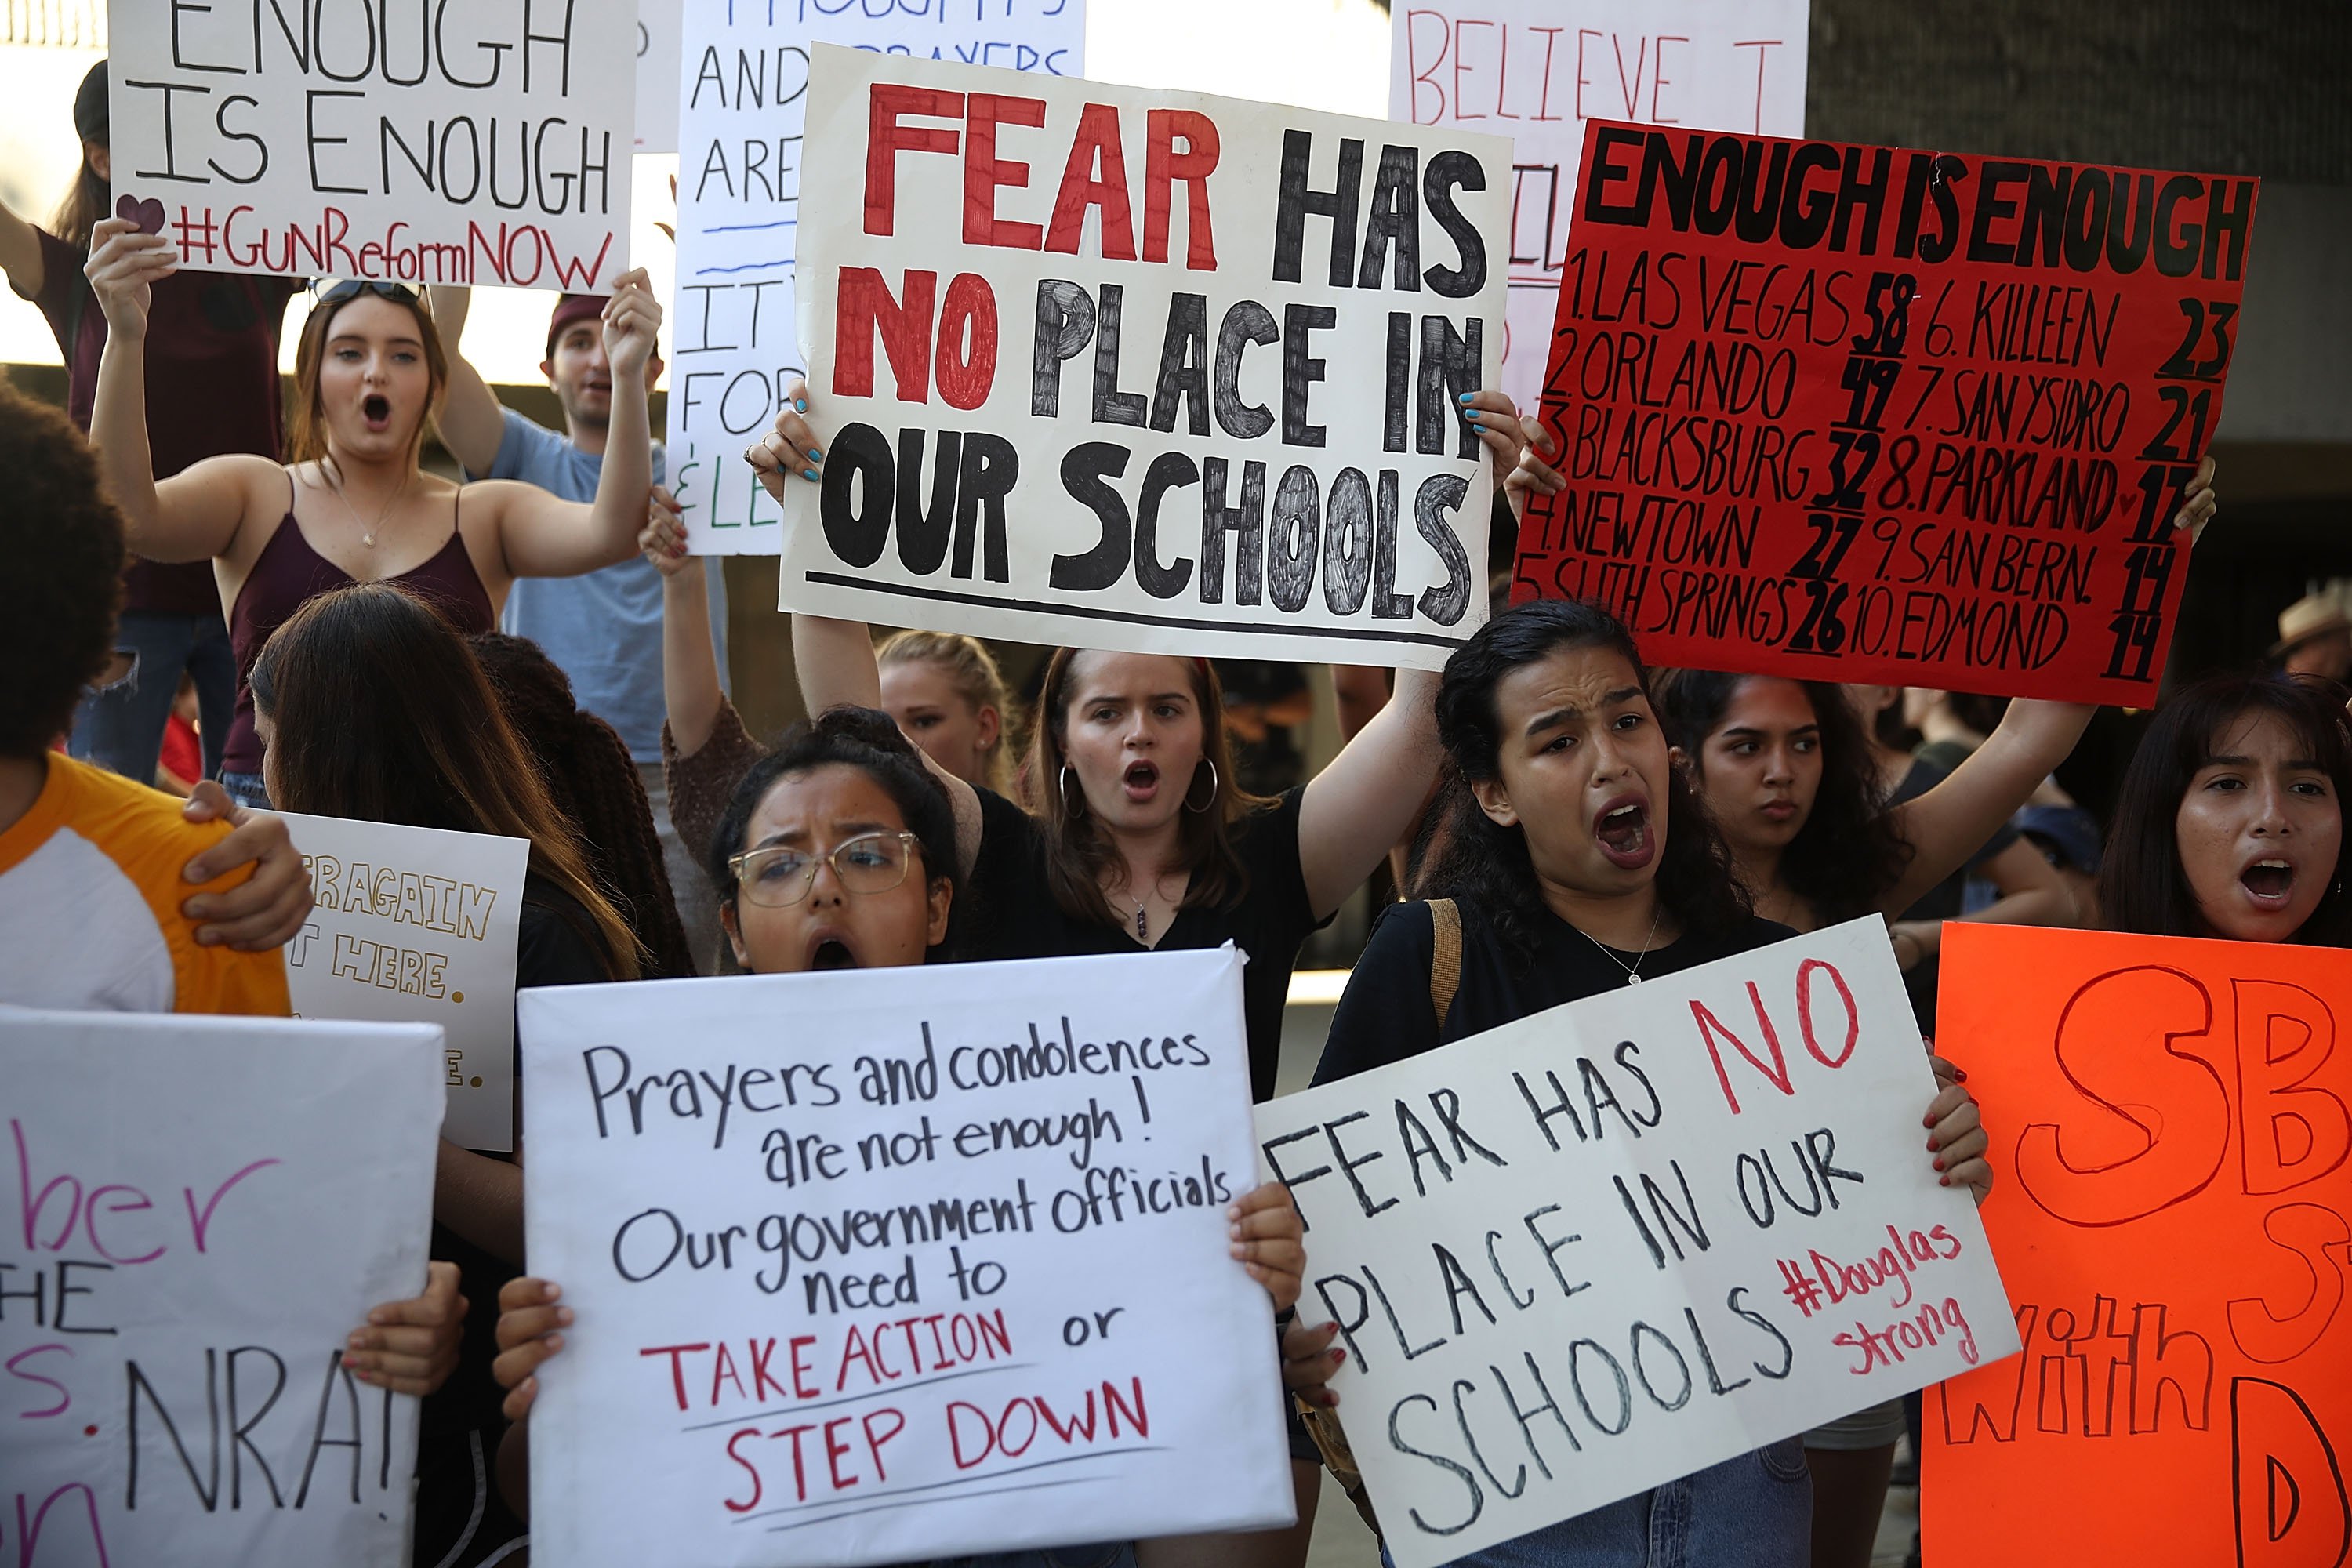 ENOUGH
IS ENOUGH
#GUNReformNOW
THOUGHTS
AND PRAYERS
ARE
IT'
FOR
& LE
FEAR HAS
NO PLACE IN
OUR SCHOOLS
BELIEVE
ENOUGH IS ENOUGH
1. LAS VEGAS 58
2 ORLANDO 49
3. BLACKSBURG 32
4. NEWTOWN 27
5. SUTH SPRINGS 26
6. KILLEEN 23
7. SAN YSIDRO 21
8. PARKLAND 17
9. SAN BERN. 14
10. EDMOND 14
ERAGAIN
T HERE.
E.
ber
HE
S.
NRA!
Prayers and condolences
are not enough!
Our government officials
need to
TAKE ACTION or
STEP DOWN
FEAR HAS NO
PLACE IN OUR
SCHOOLS
#Douglas
strong
SB
S
With
D